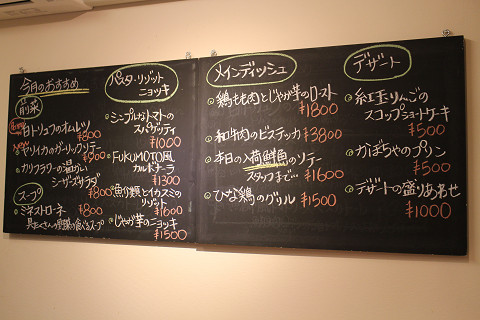 今月のおすすめ
前菜
白トリュフのオムレツ
¥800
ヤリイカのガーリックソテー
¥900
カリフラワーの温かい
シーザーサラダ
¥800
スープ
ミネストローネ
¥800
具だくさんの野菜の食べるスープ
パスタ・リゾット
ニョッキ
シンプルなトマトの
スパゲッティ
¥1000
FUKUMOTO風
カルボナーラ
¥1300
魚介類とイカスミの
リゾット
¥1600
じゃが芋のニョッキ
¥1500
メインディッシュ
鶏もも肉とじゃが芋のロースト
¥1800
和牛肉のビステッカ ¥3800
本日の入荷鮮魚のソテー
スタッフまで… ¥1600
ひな鶏のグリル ¥1500
デザート
紅玉りんごの
スコップショートケーキ
¥500
かぼちゃのプリン
¥500
デザートの盛りあわせ
¥1000